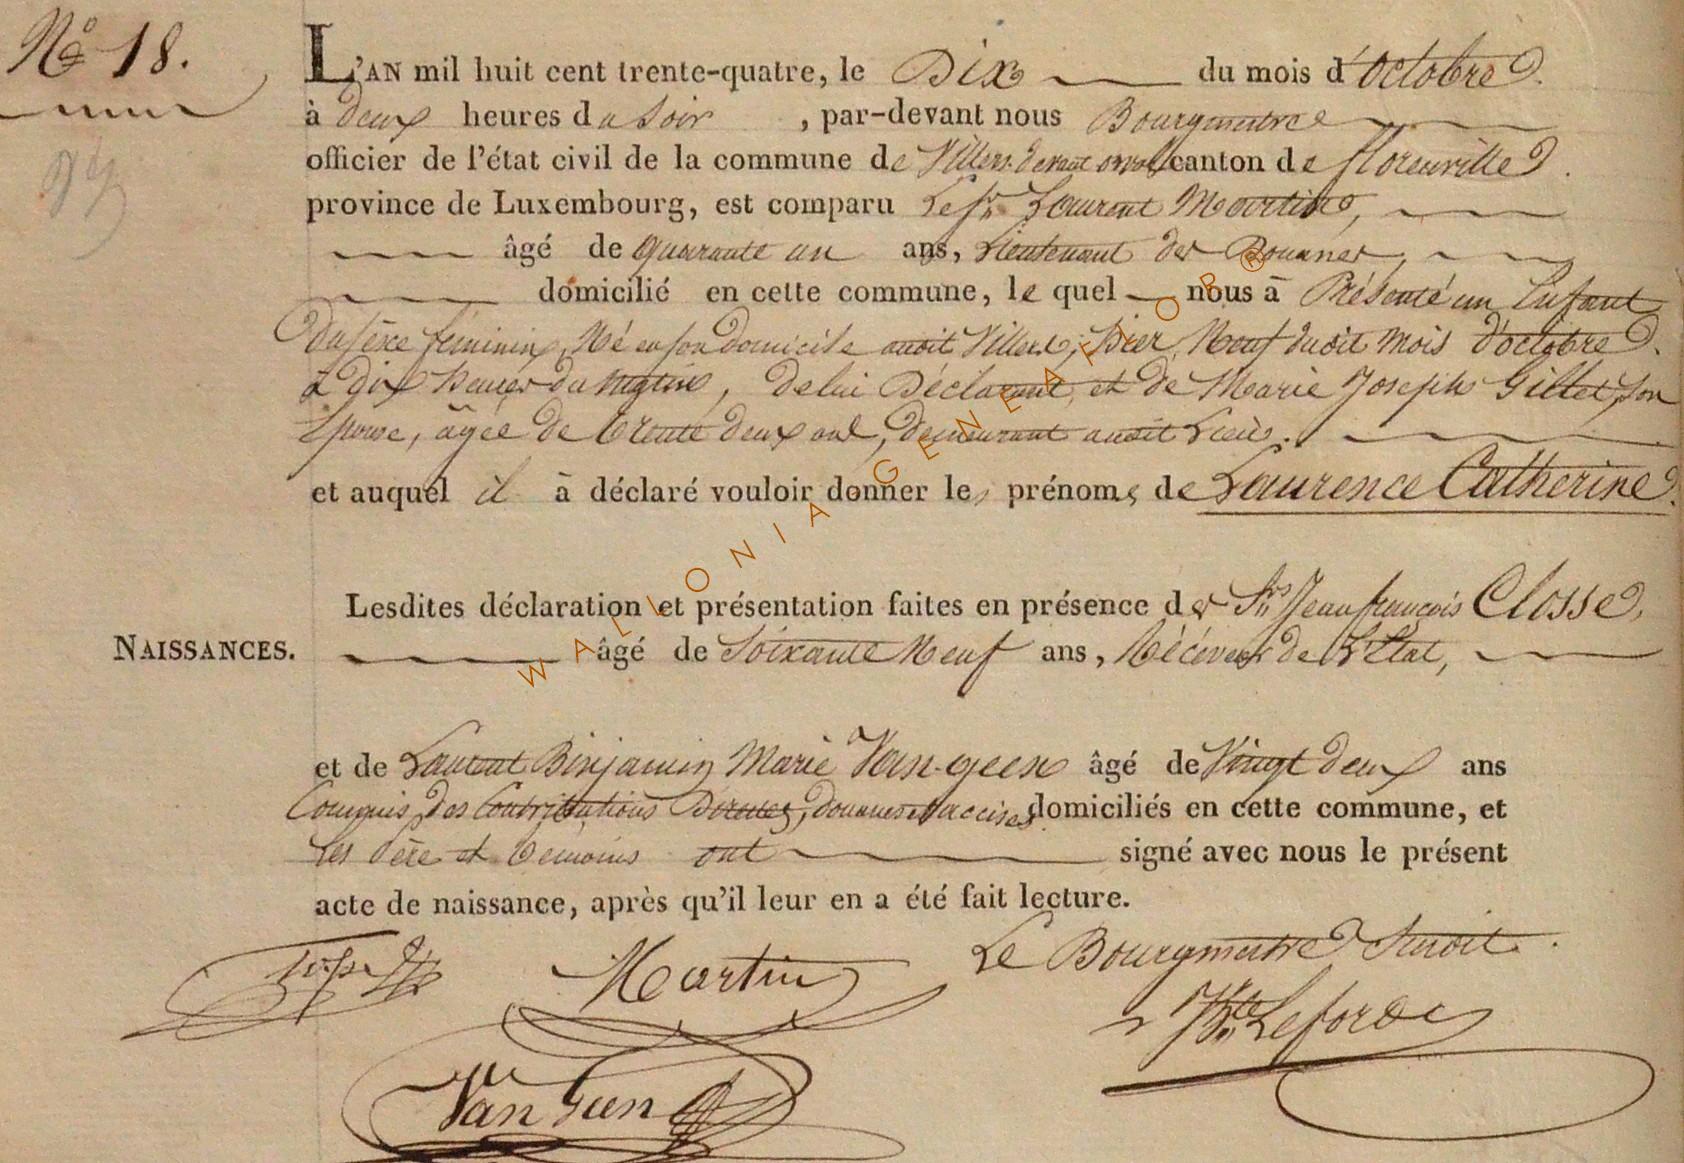 N° 18.
L'AN mil huit cent trente-quatre, le Dix du mois d'Octobre.
à deux heures du Soir, par-devant nous Bourgmestre
officier de l'état civil de la commune de Villers devant orval canton de florenville.
province de Luxembourg, est comparu Le Sr. Laurent Martin,
âgé de quarante un ans, Lieutenant des Douanes,
domicilié en cette commune, le quel nous à Présenté un Enfant
du sexe féminin, Né en son domicile audit Villers, hier Neuf dudit mois d'octobre.
à dix heures du Matin, de lui Déclarant et de Marie Joseph Gillet, son
Epouse, âgée de trente deux ans, demeurant audit Lieu.
et auquel il à déclaré vouloir donner les prénoms de Laurence Catherine.
Lesdites déclaration et présentation faites en présence des Srs. Jean françois Closse,
NAISSANCES.
âgé de Soixante Neuf ans, Récéveur de L'Etat,
et de Laurent Binjamin Marie Van-geen âgé de Vingt deux ans
Commis des Contributions Directes, douanes et accises domiciliés en cette commune, et
Les Père et témoins ont signé avec nous le présent
acte de naissance, après qu'il leur en a été fait lecture.
Martin
Le Bourgmestre Susdit.
Leforde
Van Geen
WALLONIA GENEALOGR ®